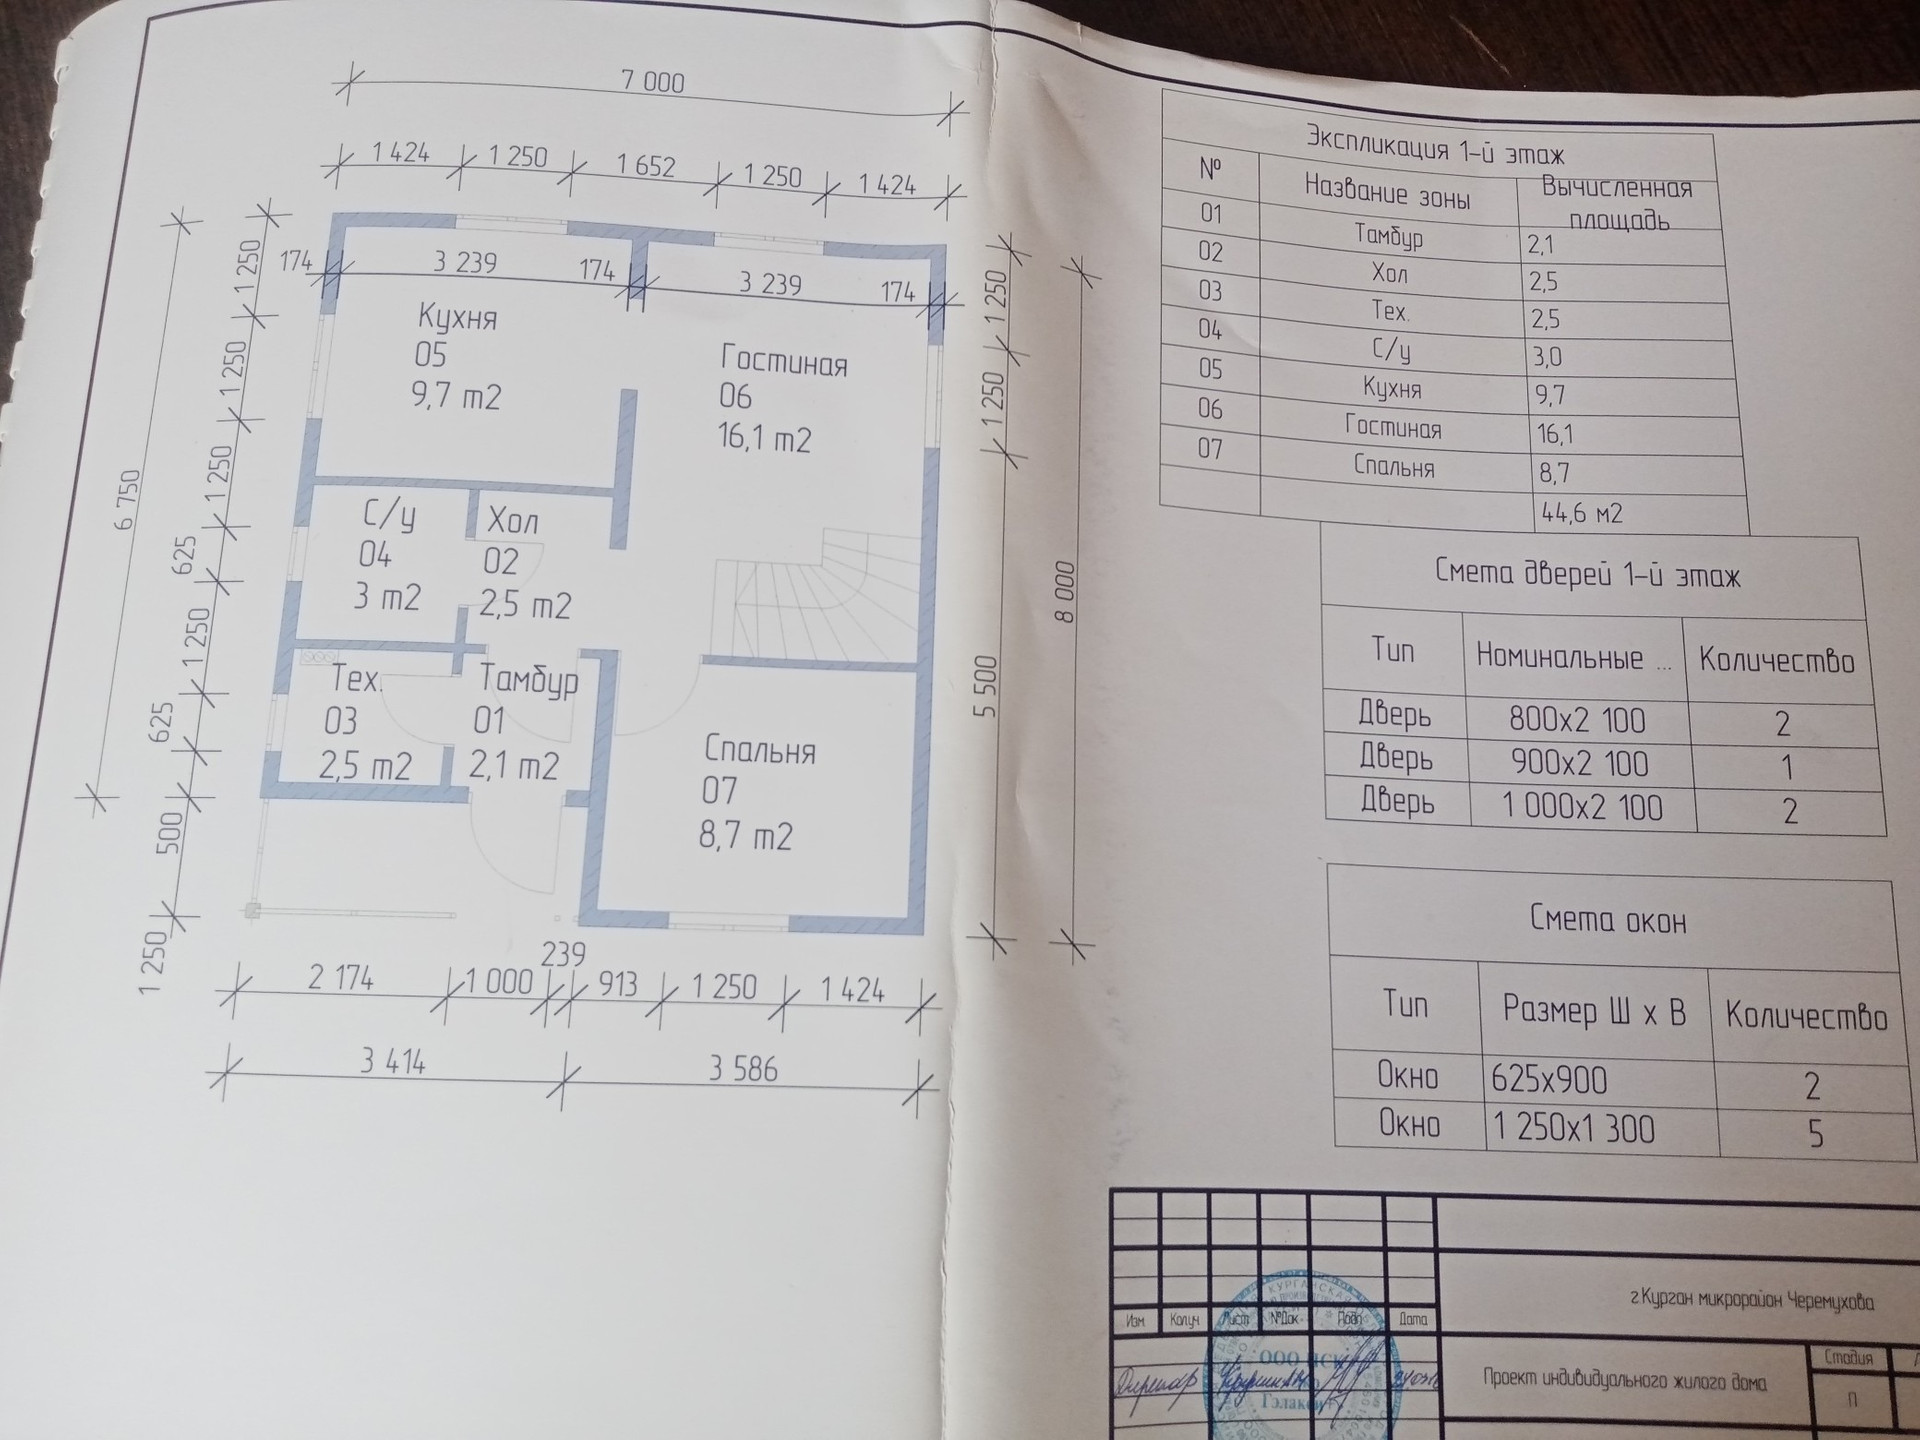 7 000
1 424
1 250
1 652
1 250
1 424
174
3 239
174
3 239
174
1 250
1 250
1 250
625
1 250
625
500
1 250
6 750
Кухня
05
9,7 m2
Гостиная
06
16,1 m2
С/у
04
3 m2
Хол
02
2,5 m2
Тех.
03
2,5 m2
Тамбур
01
2,1 m2
Спальня
07
8,7 m2
1 250
1 250
5 500
8 000
239
2 174
1 000
913
1 250
1 424
3 414
3 586
Экспликация 1-й этаж
№ Название зоны Вычисленная площадь
01 Тамбур 2,1
02 Хол 2,5
03 Тех. 2,5
04 С/у 3,0
05 Кухня 9,7
06 Гостиная 16,1
07 Спальня 8,7
44,6 м2
Смета дверей 1-й этаж
Тип Номинальные ... Количество
Дверь 800x2 100 2
Дверь 900x2 100 1
Дверь 1 000x2 100 2
Смета окон
Тип Размер Ш х В Количество
Окно 625x900 2
Окно 1 250x1 300 5
Изм. Колуч Лист №Док. Подп. Дата
г.Курган микрорайон Черемухова
Директор
Проект индивидуального жилого дома
Стадия
П
ООО